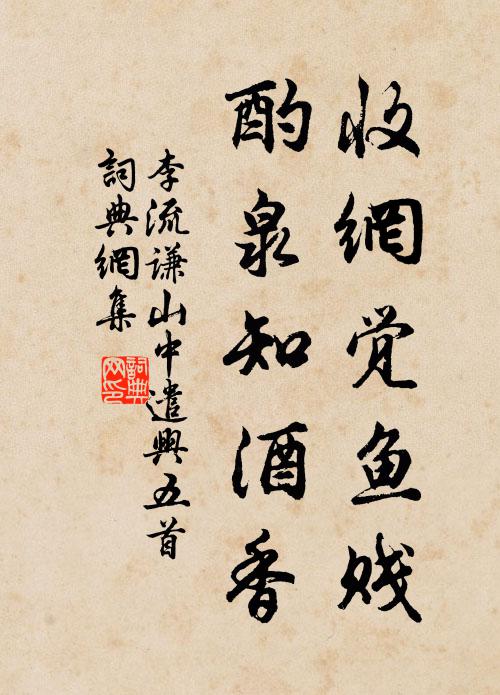 收網觉鱼贱
酌泉知酒香
李流谦山中遣興五首
詞典網集
詞典网印